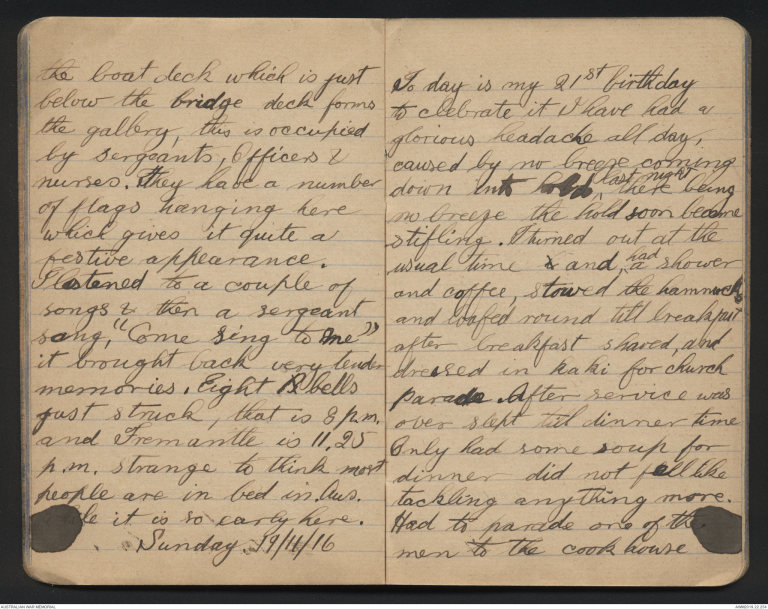 the boat deck which is just
below the bridge deck forms
the gallery, this is occupied
by sergeants, Officers &
nurses. They have a number
of flags hanging here
which gives it quite a
festive appearance.
I listened to a couple of
songs & then a sergeant
sang, "Come sing to me"
it brought back very tender
memories. Eight bells
just struck, that is 8 p.m.
and Fremantle is 11.25
p.m. strange to think most
people are in bed in Aus.
while it is so early here.
Sunday. 19/11/16
To day is my 21st birthday
to clebrate it I have had a
glorious headache all day,
caused by no breeze coming
down into hold last night, there being
no breeze the hold soon became
stifling. Turned out at the
usual time and, had a shower
and coffee, stowed the hammock
and loafed round till breakfast
after breakfast shaved, and
dressed in kaki for church
parade. After service was
over slept till dinner time
Only had some soup for
dinner did not feel like
tackling anything more.
Had to parade one of the
men to the cook house
AUSTRALIAN WAR MEMORIAL